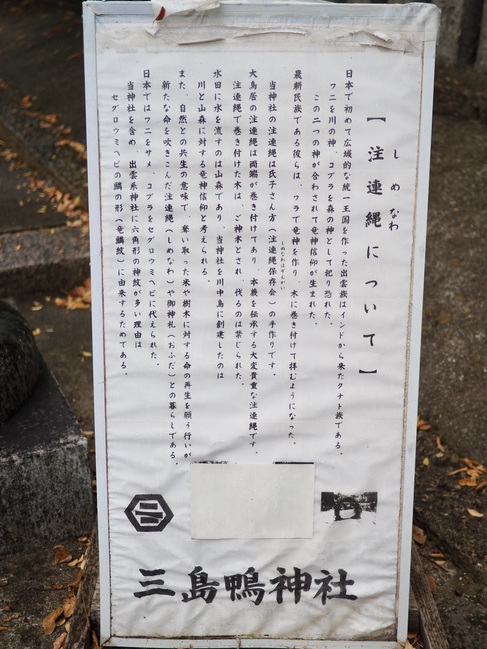 しめなわ
【注連縄について】
日本で初めて広域的な統一王国を作った出雲族はインドから来たクナト族である。
ワニを川の神、コブラを森の神として祀り恐れた。
この二つの神が合わされて竜神信仰が生まれた。
農耕民族である彼らは、ワラで竜神を作り、木に巻き付けて拝むようになった。
しめなわほぞんかい
当神社の注連縄は氏子さん方（注連縄保存会）の手作りです。
大鳥居の注連縄は両端が巻き付けてあり、本教を伝承する大変貴重な注連縄です。
注連縄で巻き付けた木は、ご神木とされ、伐るのは禁じられた。
水田に水を流すのは山森であり、当神社を川中島に創建したのは
川と山森に対する竜神信仰と考えられる。
また、自然との共生の意味で、奪い取った米や樹木に対する命の再生を願う行いが
新たな命を吹きこんだ注連縄（しめなわ）や御神札（おふだ）との暮らしである。
日本ではワニをサメ、コブラをセグロウミヘビに代えられた。
当神社を含め、出雲系神社に六角形の神紋が多い理由は
セグロウミヘビの鱗の形（竜鱗紋）に由来するためである。
三
三島鴨神社